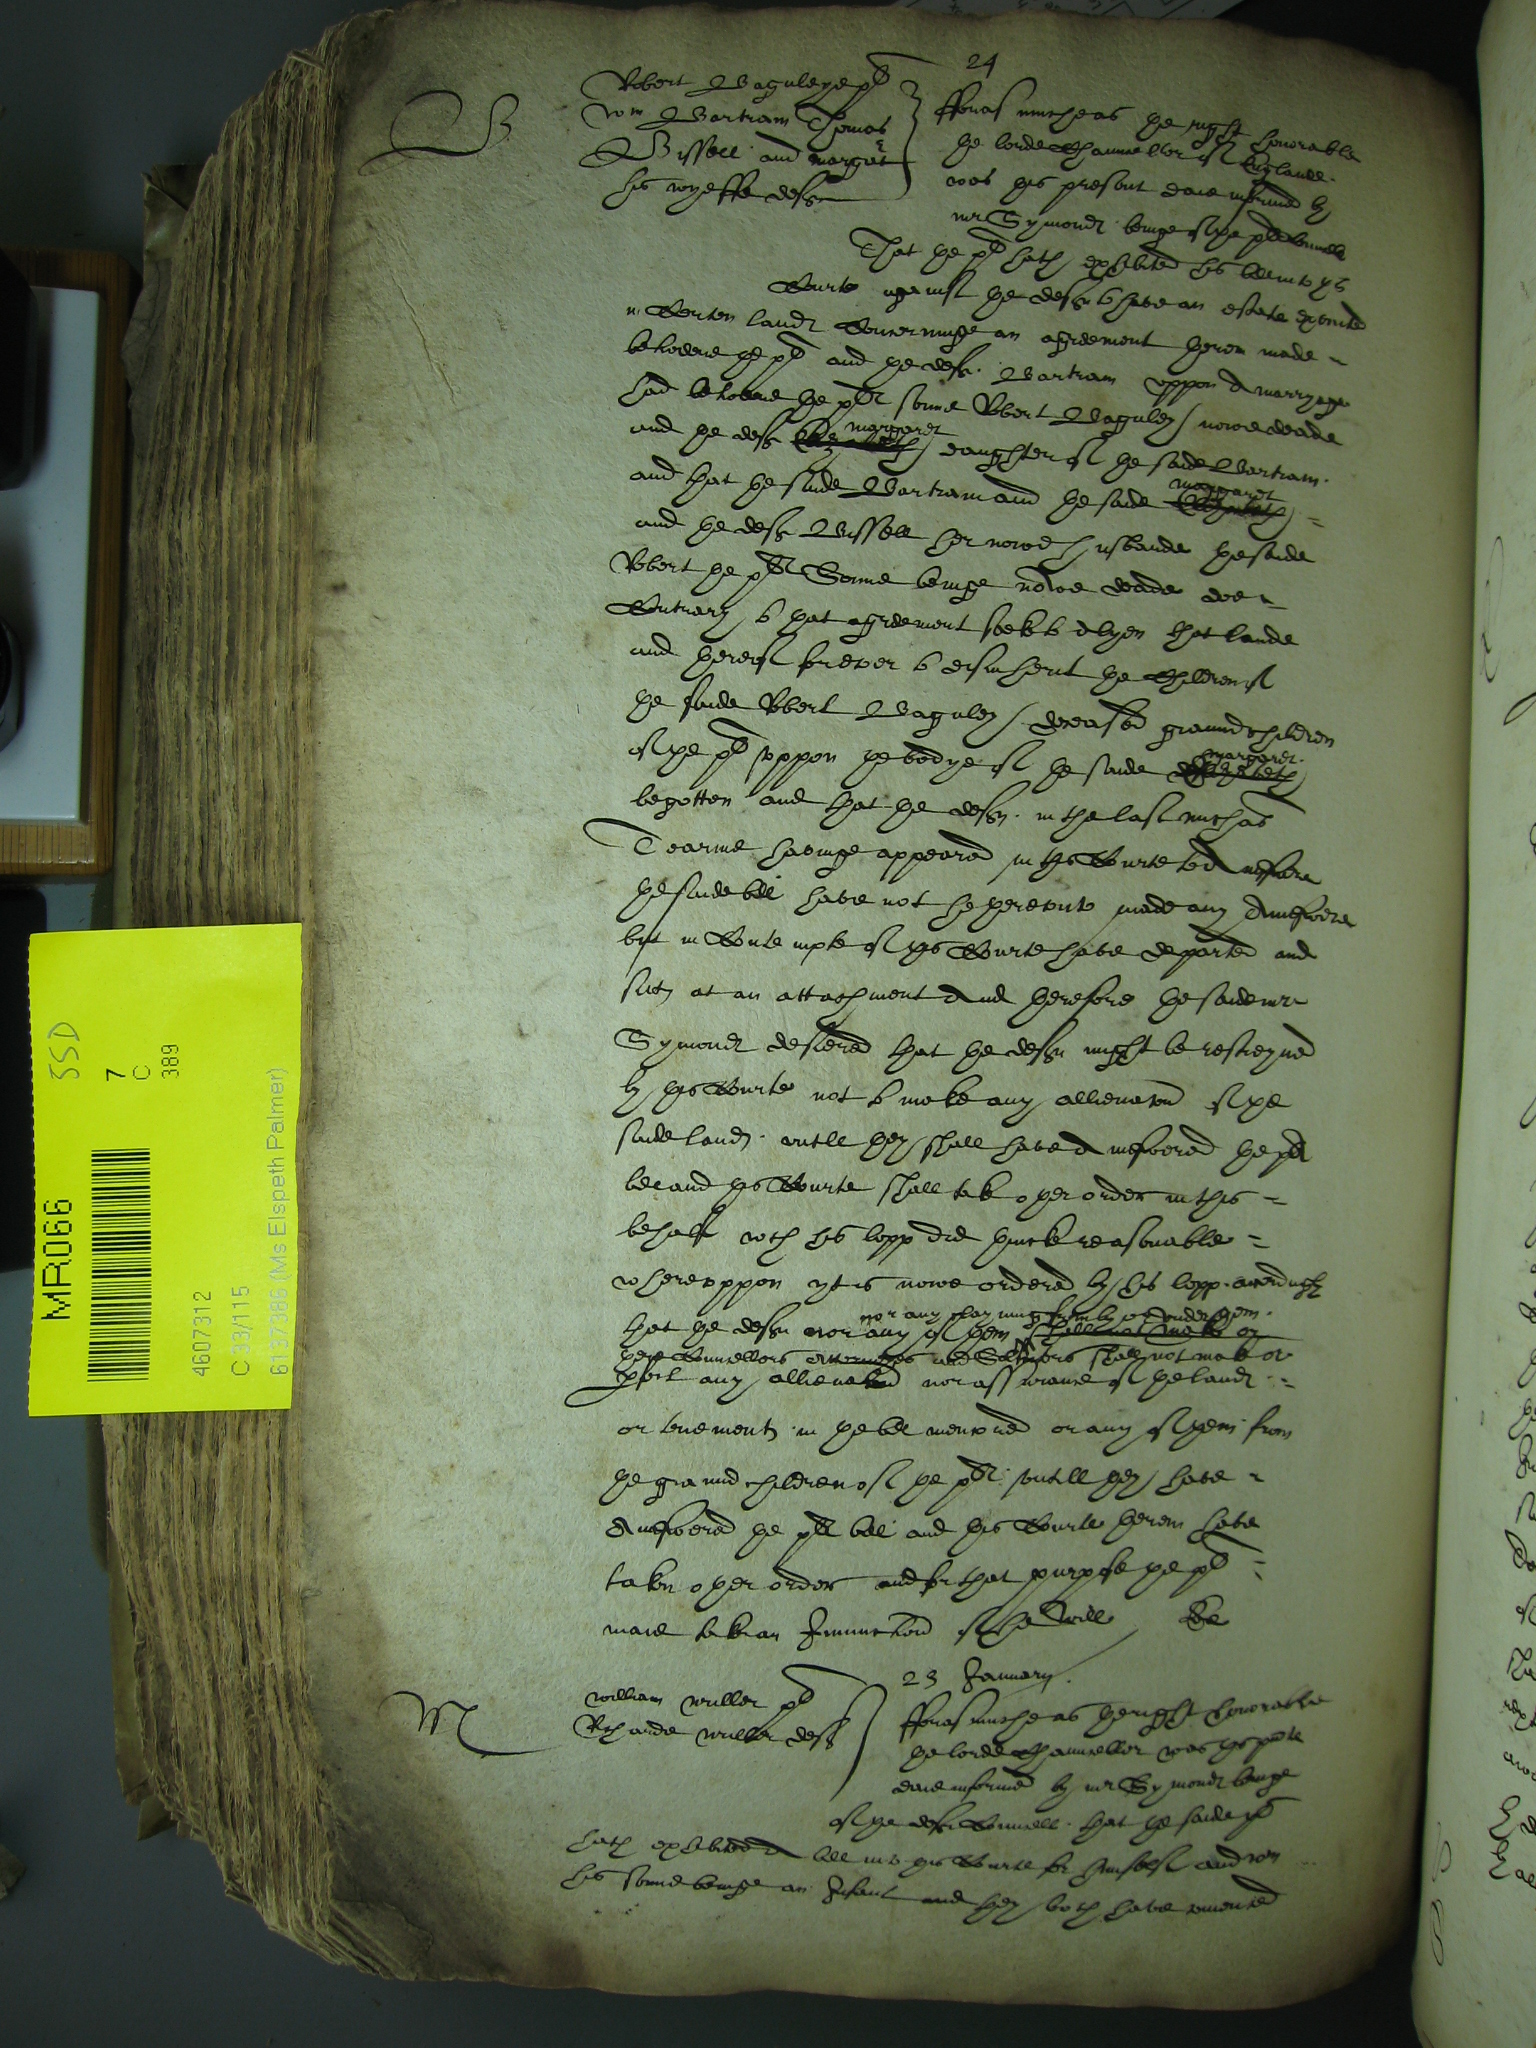 24
B
Robert Baguleye pl
Wm Bartram Thomas
Bissell and margret
his wyeffe defts
fforasmucheas the right honorable
the lorde Chauncellor of Englande
was this present daie informed by
mr Symondes beinge of the pl Councell
That the pl hath exhibited his bill into this
Courte against the defts to have an estate executed
in certen landes Concerninge an agreement therein made
betwene the pl and the deft Bartram uppon a marryage
had betwene the ples sonne Robert Baguley nowe deade
and the deft margaret daughter of the saide Bartram
and that the saide Bartram and the saide margaret
and the deft Bissell her nowe husbande the saide
Robert the ples Sonne beinge nowe deade doe
Contrary to that agreement seeke to alyen that lande
and thereof forever to disinherit the Children of
the saide Robert Baguley deceased graundchildren
of the pl uppon the bodye of the saide margaret
begotten and that the defts in the last michas
Tearme havinge appeared in this Courte to answere
the saide bill have not hetherunto made any Answere
but in Contempte of this Courte have departed and
sitt at an attachment And therefore the saide mr
Symondes desiered that the defts might be restreyned
by this Courte not to make any allienacon of the
saide landes untill they shall have Answered the ples
bill and this Courte shall take other order in this
behalf wch his lopp did thincke reasonable
whereuppon yt is nowe ordered by his lopp accordingly
nor any clayming from by or under them
that the defts nor any of them shall not make or
there Councellors Attorneyes and Solicitors shall not make or
peit any allienacon nor assurance of the landes
or tenements in the bill menconed or any of them from
the graundchildren of the ples untill they have
Answered the ples bill and this Courte therein have
taken other order and for that purpose the pl
maie take an Iniunction if he will
23 January
M
william miller pl
Richarde miller deft
fforasmucheas the right honorable
the lorde Chauncellor was this pnte
daie informed by mr Symondes beinge
of the defts Councell that the saide pl
hath exhibited a bill into this Courte for himself and wm
his sonne beinge an Infant and they both have
MR066
SSD
7
C
389
4607312
C 33/115
6137386 (Ms Elspeth Palmer)